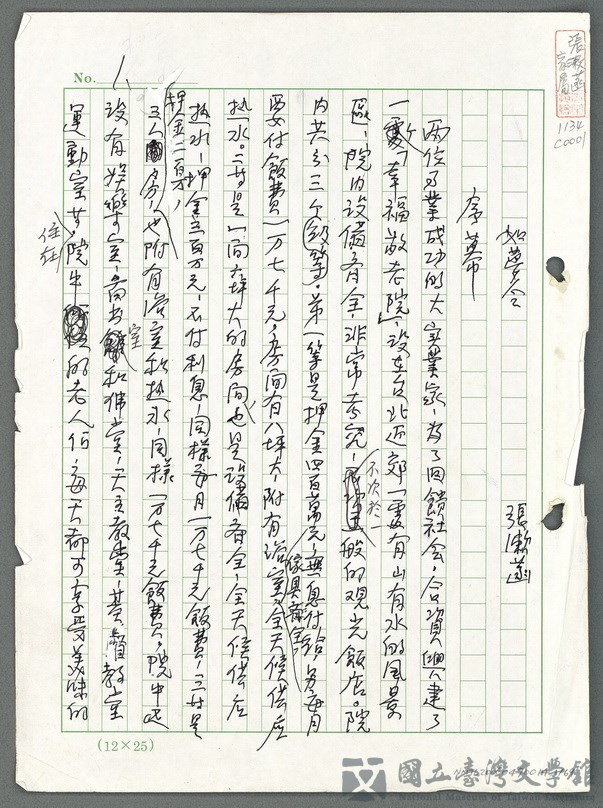 No. 1
張漱菡
家屬
1134
C0001
如蓮令
張漱菡
序幕
兩位事業成功的大實業家,為了回饋社會,合資興建了
一處「幸福敬老院」,設在台北近郊一處有山有水的風景
區,院內設備齊全,非常考究,不次於一般的觀光飯店。院
內共分三個等。第一等是押金四百萬元,無息付給,另每月
要付飯費一万七千元,房間有八坪大,附有浴室,傢具齊全,全天候供应
热水。二等是一间大坪大的房间,也是設備齊全,全天候供应
热水,押金三百万元,不付利息,同樣每月一万七千元飯費,三等是
押金二百万,
三人房,也附有浴室和热水,同樣一万七千元飯費,院中还
設有娛樂室,圖書室和佛堂,天主教堂,基督教室
運動室等,院中住在的老人们,每天都可享受美味的
(12×25)
國立臺灣文學館
National Museum of Taiwan Literature